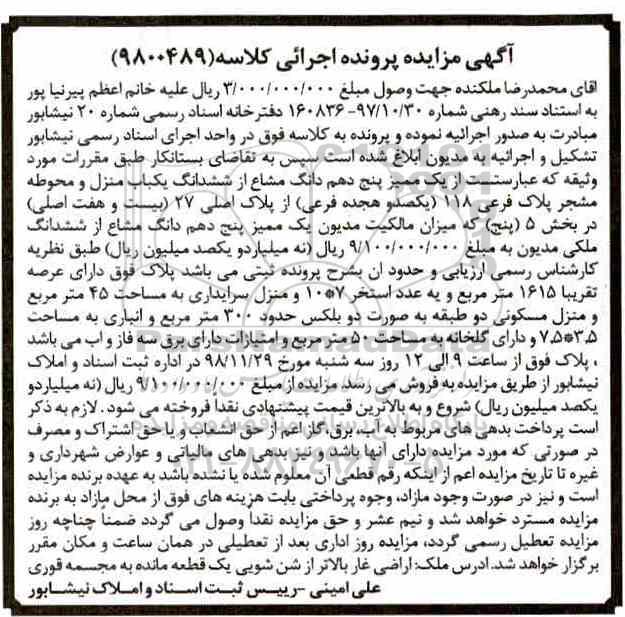 آگهی مزایده پرونده اجرائی کلاسه(۹۸۰۰۴۸۹)
اقای محمدرضا ملکنده جهت وصول مبلغ ۳/۰۰۰/۰۰۰/۰۰۰ ریال علیه خانم اعظم پیرنیا پور
به استناد سند رهنی شماره ۹۷/۱۰/۳۰- ۱۶۰۸۳۶ دفترخانه اسناد رسمی شماره ۲۰ نیشابور
مبادرت به صدور اجرائیه نموده و پرونده به کلاسه فوق در واحد اجرای اسناد رسمی نیشابور
تشکیل و اجرائیه به مدیون ابلاغ شده است سپس به تقاضای بستانکار طبق مقررات مورد
وثیقه که عبارتست از یک ممیز پنج دهم دانگ مشاع از ششدانگ یکباب منزل و محوطه
مشجر پلاک فرعی ۱۱۸ (یکصدو هجده فرعی) از پلاک اصلی ۲۷ (بیست و هفت اصلی)
در بخش ۵ (پنج) که میزان مالکیت مدیون یک ممیز پنج دهم دانگ مشاع از ششدانگ
ملکی مدیون به مبلغ ۹/۱۰۰/۰۰۰/۰۰۰ ریال (نه میلیاردو یکصد میلیون ریال) طبق نظریه
کارشناس رسمی ارزیابی و حدود ان بشرح پرونده ثبتی می باشد پلاک فوق دارای عرصه
تقریبا ۱۶۱۵ متر مربع و یه عدد استخر ۷*۱۰ و منزل سرایداری به مساحت ۴۵ متر مربع
و منزل مسکونی دو طبقه به صورت دو بلکس حدود ۳۰۰ متر مربع و انباری به مساحت
۳،۵*۷،۵ و دارای گلخانه به مساحت ۵۰ متر مربع و امتیازات دارای برق سه فاز و اب می باشد
، پلاک فوق از ساعت ۹ الی ۱۲ روز سه شنبه مورخ ۹۸/۱۱/۲۹ در اداره ثبت اسناد و املاک
نیشابور از طریق مزایده به فروش می رسد. مزایده از مبلغ ۹/۱۰۰/۰۰۰/۰۰۰ ریال (نه میلیاردو
یکصد میلیون ریال) شروع و به بالاترین قیمت پیشنهادی نقدا فروخته می شود . لازم به ذکر
است پرداخت بدهی های مربوط به آب، برق، گاز اعم از حق انشعاب و یا حق اشتراک و مصرف
در صورتی که مورد مزایده دارای آنها باشد و نیز بدهی های مالیاتی و عوارض شهرداری و
غیره تا تاریخ مزایده اعم از اینکه رقم قطعی آن معلوم شده یا نشده باشد به عهده برنده مزایده
است و نیز در صورت وجود مازاد، وجوه پرداختی بابت هزینه های فوق از محل مازاد به برنده
مزایده مسترد خواهد شد و نیم عشر و حق مزایده نقداً وصول می گردد ضمناً چناچه روز
مزایده تعطیل رسمی گردد، مزایده روز اداری بعد از تعطیلی در همان ساعت و مکان مقرر
برگزار خواهد شد. ادرس ملک: اراضی غار بالاتر از شن شویی یک قطعه مانده به مجسمه قوری
علی امینی -رییس ثبت اسناد و املاک نیشابور